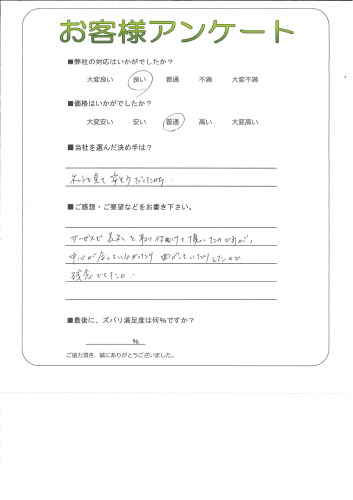 お客様アンケート
■弊社の対応はいかがでしたか？
大変良い 良い 普通 不満 大変不満
■価格はいかがでしたか？
大変安い 安い 普通 高い 大変高い
■当社を選んだ決め手は？
ネットを見て 安そうだったから.
■ご感想・ご要望などをお書き下さい。
サービスで表札を取り付けて頂いたのですが、
中心が合っていなかったり 曲がっていたりしたので
残念でした。
■最後に、ズバリ満足度は何％ですか？
％
ご協力頂き、誠にありがとうございました。